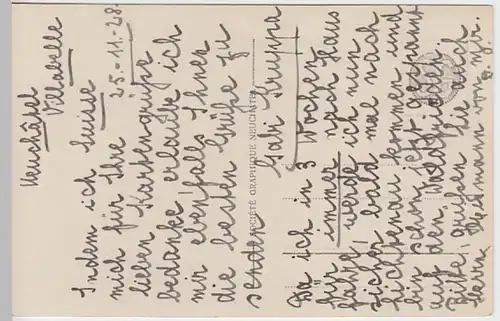 Neuchâtel
Villabelle
Suisse
25.-11.-28.
Indem ich
mich für Ihre
lieben Kartengrüße
bedanke erlaube ich
mir ebenfalls Ihnen
die besten Grüße zu
senden
Gabi Kruppa
SOCIÉTÉ GRAPHIQUE NEUCHÂTEL
Da ich in 3 Wochen
für immer nach Haus
fahre, werde ich nun
sicher bald mal nach
Lichtenau kommen und
bin schon jetzt gespannt
auf den Waldfriedel.
Bitte, grüßen Sie auch
Herrn Heidmann von mir.